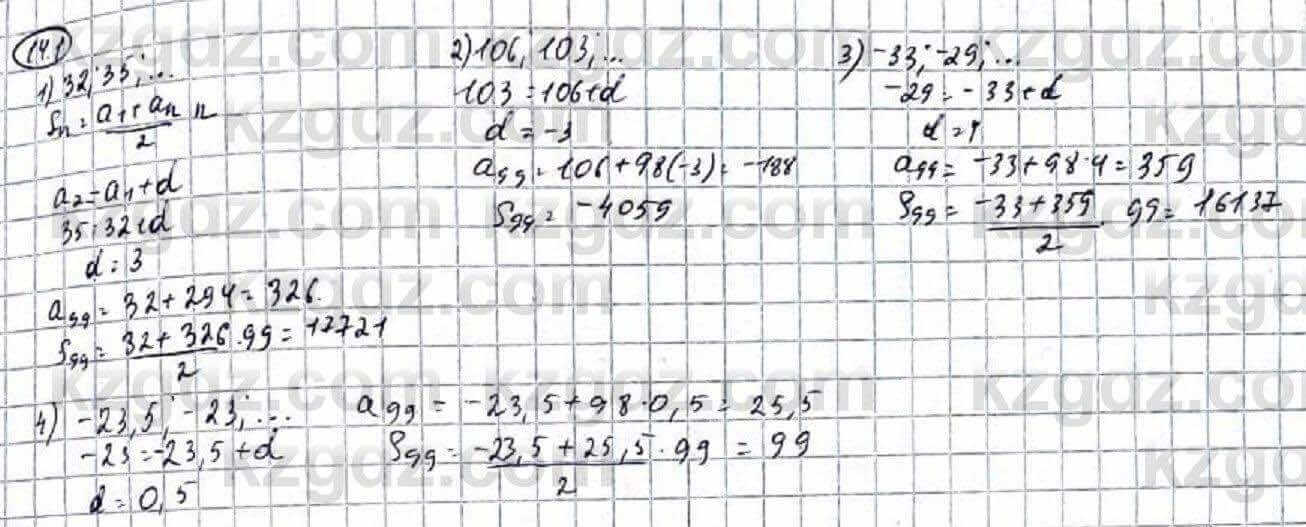 14.1
1) 32; 35; ...
Sn = (a1 + an)/2 n
a2 = a1 + d
35 = 32 + d
d = 3
a99 = 32 + 294 = 326.
S99 = (32 + 326)/2 · 99 = 17721
2) 106, 103; ...
103 = 106 + d
d = -3
a99 = 106 + 98(-3) = -188
S99 = -4059
3) -33; -29; ...
-29 = -33 + d
d = 4
a99 = -33 + 98 · 4 = 359
S99 = (-33 + 359)/2 · 99 = 16137
4) -23,5; -23; ...
-23 = -23,5 + d
d = 0,5
a99 = -23,5 + 98 · 0,5 = 25,5
S99 = (-23,5 + 25,5)/2 · 99 = 99
kzgdz.com